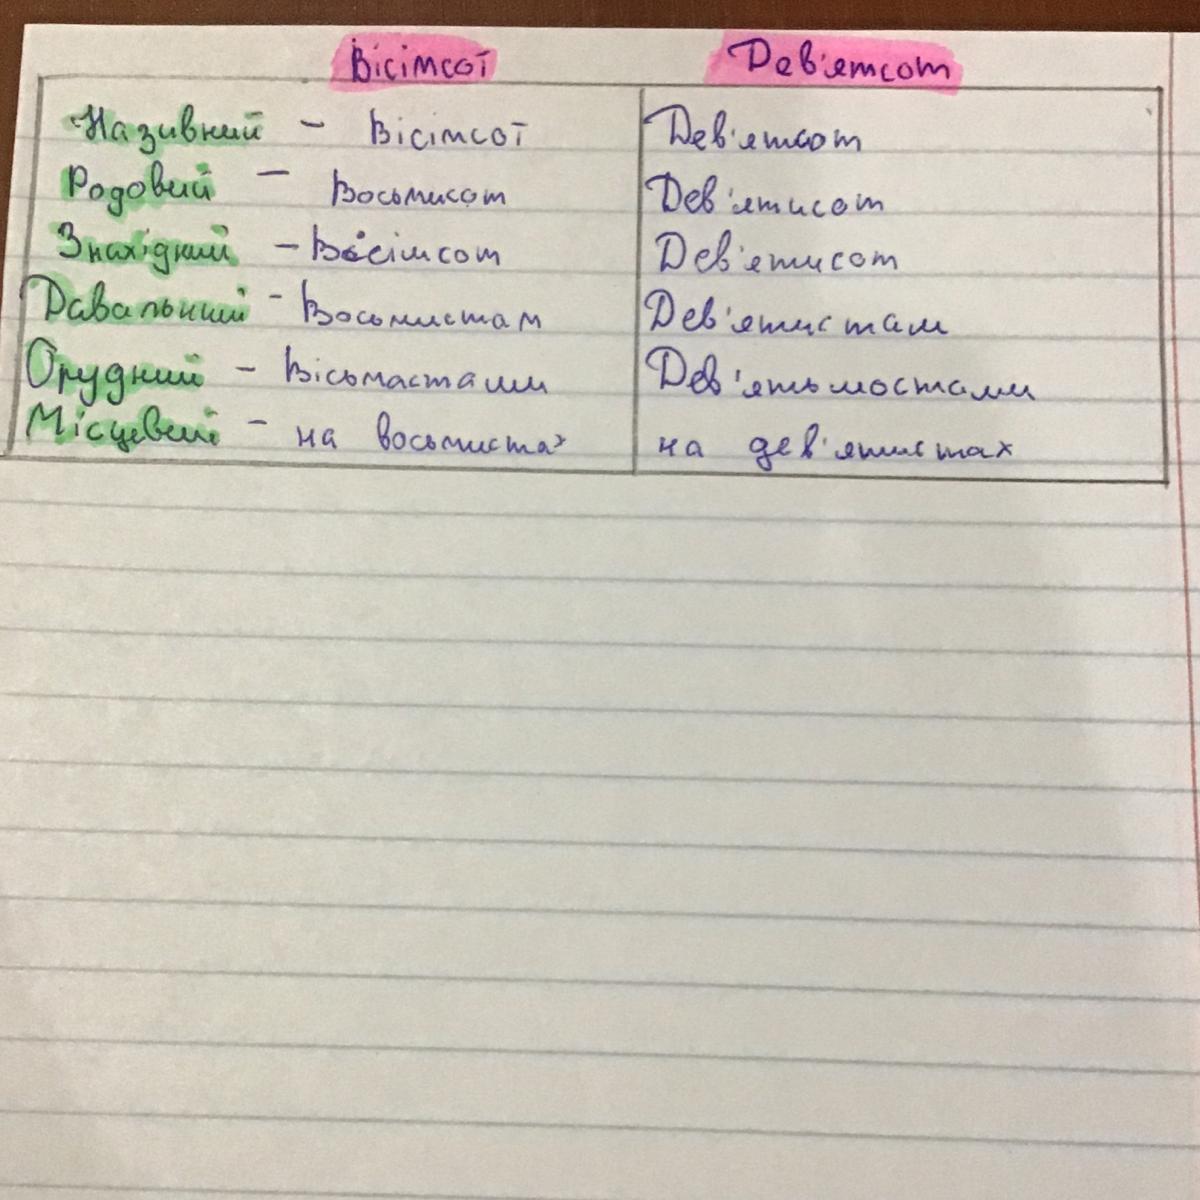 Вісімсої Дев'ятсот
Називний - Вісімсої Дев'ятсот
Родовий - Восьмисот Дев'ятисот
Знахідний - Вісімсот Дев'ятисот
Давальний - Восьмистам Дев'ятистам
Орудний - Вісьмастами Дев'ятьмостами
Місцевий - на восьмистах на дев'ятистах